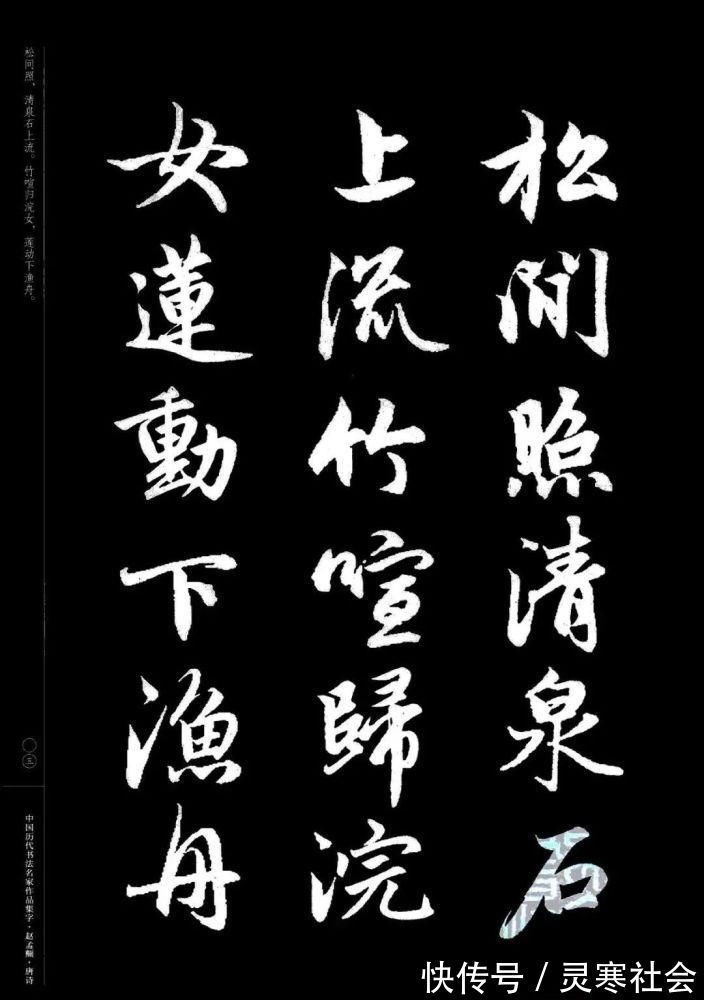 松間照清泉石
上流竹喧歸浣
女蓮動下漁舟
松间照，清泉石上流。竹喧归浣女，莲动下渔舟。
〇三
中国历代书法名家作品集字·赵孟頫·唐诗
快传号／灵寒社会